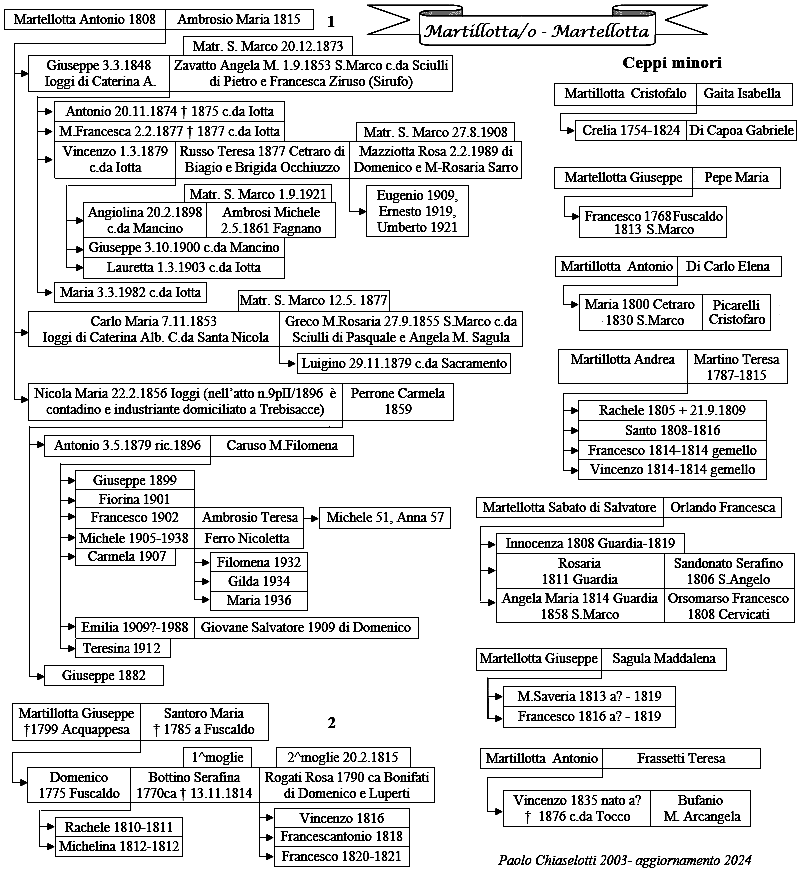 Martillotta/o - Martellotta
1
Martellotta Antonio 1808 Ambrosio Maria 1815
Matr. S. Marco 20.12.1873
Giuseppe 3.3.1848
Ioggi di Caterina A.
Zavatto Angela M. 1.9.1853 S.Marco c.da Sciulli
di Pietro e Francesca Ziruso (Sirufo)
Antonio 20.11.1874 † 1875 c.da Iotta
M.Francesca 2.2.1877 † 1877 c.da Iotta
Matr. S. Marco 27.8.1908
Vincenzo 1.3.1879
c.da Iotta
Russo Teresa 1877 Cetraro di
Biagio e Brigida Occhiuzzo
Mazziotta Rosa 2.2.1989 di
Domenico e M-Rosaria Sarro
Matr. S. Marco 1.9.1921
Angiolina 20.2.1898
c.da Mancino
Ambrosi Michele
2.5.1861 Fagnano
Eugenio 1909,
Ernesto 1919,
Umberto 1921
Giuseppe 3.10.1900 c.da Mancino
Lauretta 1.3.1903 c.da Iotta
Maria 3.3.1982 c.da Iotta
Matr. S. Marco 12.5. 1877
Carlo Maria 7.11.1853
Ioggi di Caterina Alb. C.da Santa Nicola
Greco M.Rosaria 27.9.1855 S.Marco c.da
Sciulli di Pasquale e Angela M. Sagula
Luigino 29.11.1879 c.da Sacramento
Nicola Maria 22.2.1856 Ioggi (nell'atto n.9pII/1896 è
contadino e industriante domiciliato a Trebisacce)
Perrone Carmela
1859
Antonio 3.5.1879 ric.1896 Caruso M.Filomena
Giuseppe 1899
Fiorina 1901
Francesco 1902 Ambrosio Teresa Michele 51, Anna 57
Michele 1905-1938 Ferro Nicoletta
Carmela 1907
Filomena 1932
Gilda 1934
Maria 1936
Emilia 1909?-1988 Giovane Salvatore 1909 di Domenico
Teresina 1912
Giuseppe 1882
2
Martillotta Giuseppe
†1799 Acquappesa
Santoro Maria
† 1785 a Fuscaldo
1^moglie 2^moglie 20.2.1815
Domenico
1775 Fuscaldo
Bottino Serafina
1770ca † 13.11.1814
Rogati Rosa 1790 ca Bonifati
di Domenico e Luperti
Rachele 1810-1811
Michelina 1812-1812
Vincenzo 1816
Francescantonio 1818
Francesco 1820-1821
Ceppi minori
Martillotta Cristofalo Gaita Isabella
Crelia 1754-1824 Di Capoa Gabriele
Martellotta Giuseppe Pepe Maria
Francesco 1768Fuscaldo
1813 S.Marco
Martillotta Antonio Di Carlo Elena
Maria 1800 Cetraro
1830 S.Marco
Picarelli
Cristofaro
Martillotta Andrea
Martino Teresa
1787-1815
Rachele 1805 + 21.9.1809
Santo 1808-1816
Francesco 1814-1814 gemello
Vincenzo 1814-1814 gemello
Martellotta Sabato di Salvatore Orlando Francesca
Innocenza 1808 Guardia-1819
Rosaria
1811 Guardia
Sandonato Serafino
1806 S.Angelo
Angela Maria 1814 Guardia
1858 S.Marco
Orsomarso Francesco
1808 Cervicati
Martellotta Giuseppe Sagula Maddalena
M.Saveria 1813 a? - 1819
Francesco 1816 a? - 1819
Martillotta Antonio Frassetti Teresa
Vincenzo 1835 nato a?
† 1876 c.da Tocco
Bufanio
M. Arcangela
Paolo Chiaselotti 2003- aggiornamento 2024